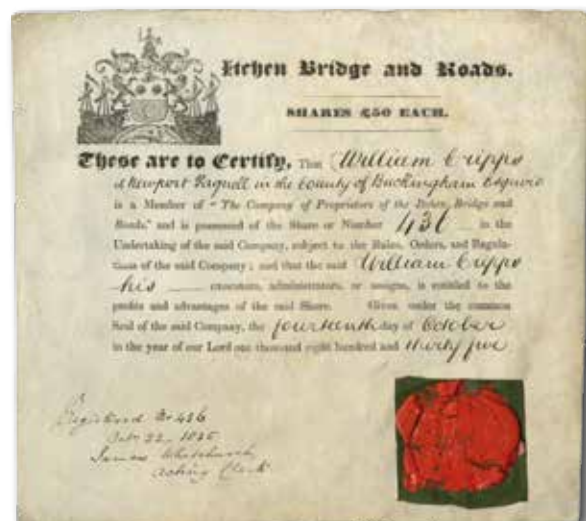 Itchen Bridge and Roads.
SHARES £50 EACH.
These are to Certify, That William Cripps
of Newport Pagnell in the County of Buckingham Esquire
is a Member of "The Company of Proprietors of the Itchen Bridge and
Roads," and is possessed of the Share or Number 436 in the
Undertaking of the said Company, subject to the Rules, Orders, and Regula-
tions of the said Company; and that the said William Cripps
his executors, administrators, or assigns, is entitled to the
profits and advantages of the said Share. Given under the common
Seal of the said Company, the fourteenth day of October
in the year of our Lord one thousand eight hundred and thirty five
Registered No 436
Octr 22, 1835
James Whitchurch
Acting Clerk